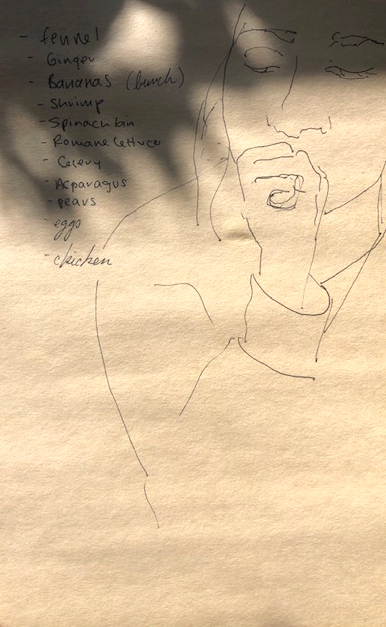 - fennel
- Ginger
- Bananas (bunch)
- Shrimp
- Spinach bin
- Romane lettuce
- Celery
- Asparagus
- pears
- eggs
- chicken